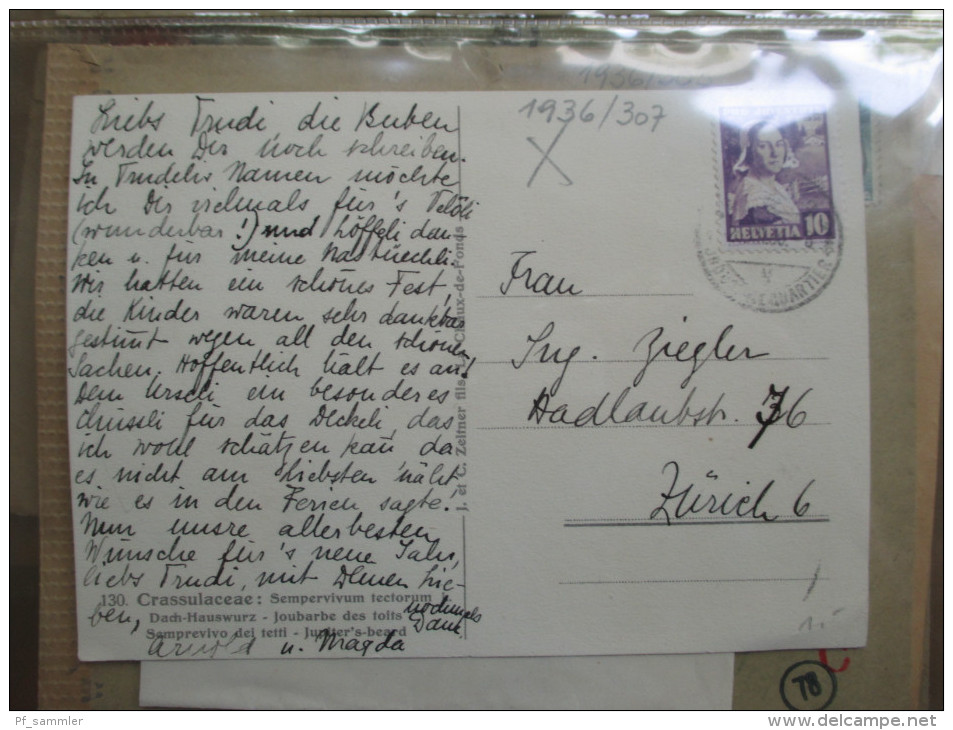 1936/307
Liebs Trudi, die Buben
werden Dir noch schreiben.
In Trudelis Namen möchte
ich Dir vielmals für's Velöli
(wunderbar!) und Löffeli dan-
ken u. für meine
Wir hatten ein schönes Fest,
die Kinder waren sehr dankbar
gestimt wegen all den schönen
Sachen. Hoffentlich hält es an!
Dem Urseli ein besonderes
Chüssli für das Deckeli, das
ich wohl schätzen kan da
es nicht am liebsten näht
wie es in den Ferien sagte!
Nun unsre allerbesten
Wünsche für's neue Jahr,
liebs Trudi, mit Deinen Lie-
ben,
nochmals
Dank
Arnold u. Magda
130. Crassulaceae: Sempervivum tectorum L.
Dach-Hauswurz - Joubarbe des toits
Semprevivo dei tetti - Jupiter's-beard
J. et C. Zeitner fils, Chaux-de-Fonds
HELVETIA 10
Frau
Ing. Ziegler
Hadlaubstr. 76
Zürich 6
78
Pf_sammler
www.delcampe.net